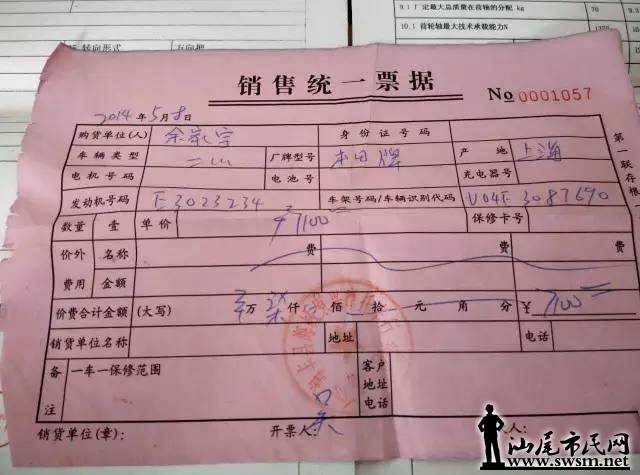 9.1 厂定最大总质量在前轴的分配 kg 70
10.1 前轮轴最大技术承载能力N
转向形式 方向把
销售统一票据
No 0001057
2014年5月8日
购货单位(人) 身份证号码
车辆类型 二 厂牌型号 本田牌 产地 上海
电机号码 电池号 充电器号
发动机号码 E3023234 车架号码/车辆识别代码 V04E3087690
数量 壹 单价 7100 保修卡号
价外费用 名称 费 费 费
金额
价费合计金额 (大写) 万 柒 仟 佰 拾 元 角 分 ¥ 7100
销货单位名称 地址 电话
备注 一车一保修范围 客户地址电话
销货单位(章): 开票人:
人:
第一联存根
汕尾市民网
www.swsm.net